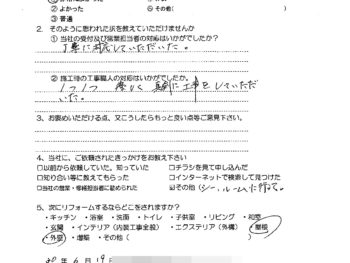 ② よかった ⑤ その他(
③ 普通
2. そのように思われた点を教えていただけませんか
① 当社の受付及び営業担当者の対応はいかがでしたか?
丁寧に対応していただいた。
② 施工時の工事職人の対応はいかがでしたか。
1つ1つ 工事をしていただ
いた。
3. お褒めいただける点、又こうしたらもっと良い点等ご意見下さい。
4. 当社に、ご依頼されたきっかけをお教え下さい
□以前から依頼していた。知っていた □チラシを見て申し込んだ
□知り合い等に教えてもらった □インターネットで検索して見つけた
□当社の営業・専務担当者に勧められた ☑その他(ショールームに
5. 次にリフォームするならどこをされますか?
・キッチン ・浴室 ・洗面 ・トイレ ・子供室 ・リビング ・和室
・玄関 ・インテリア(内装工事全般) ・エクステリア(外構) ・屋根
・外壁 ・増築 ・その他(
年 6 月 19